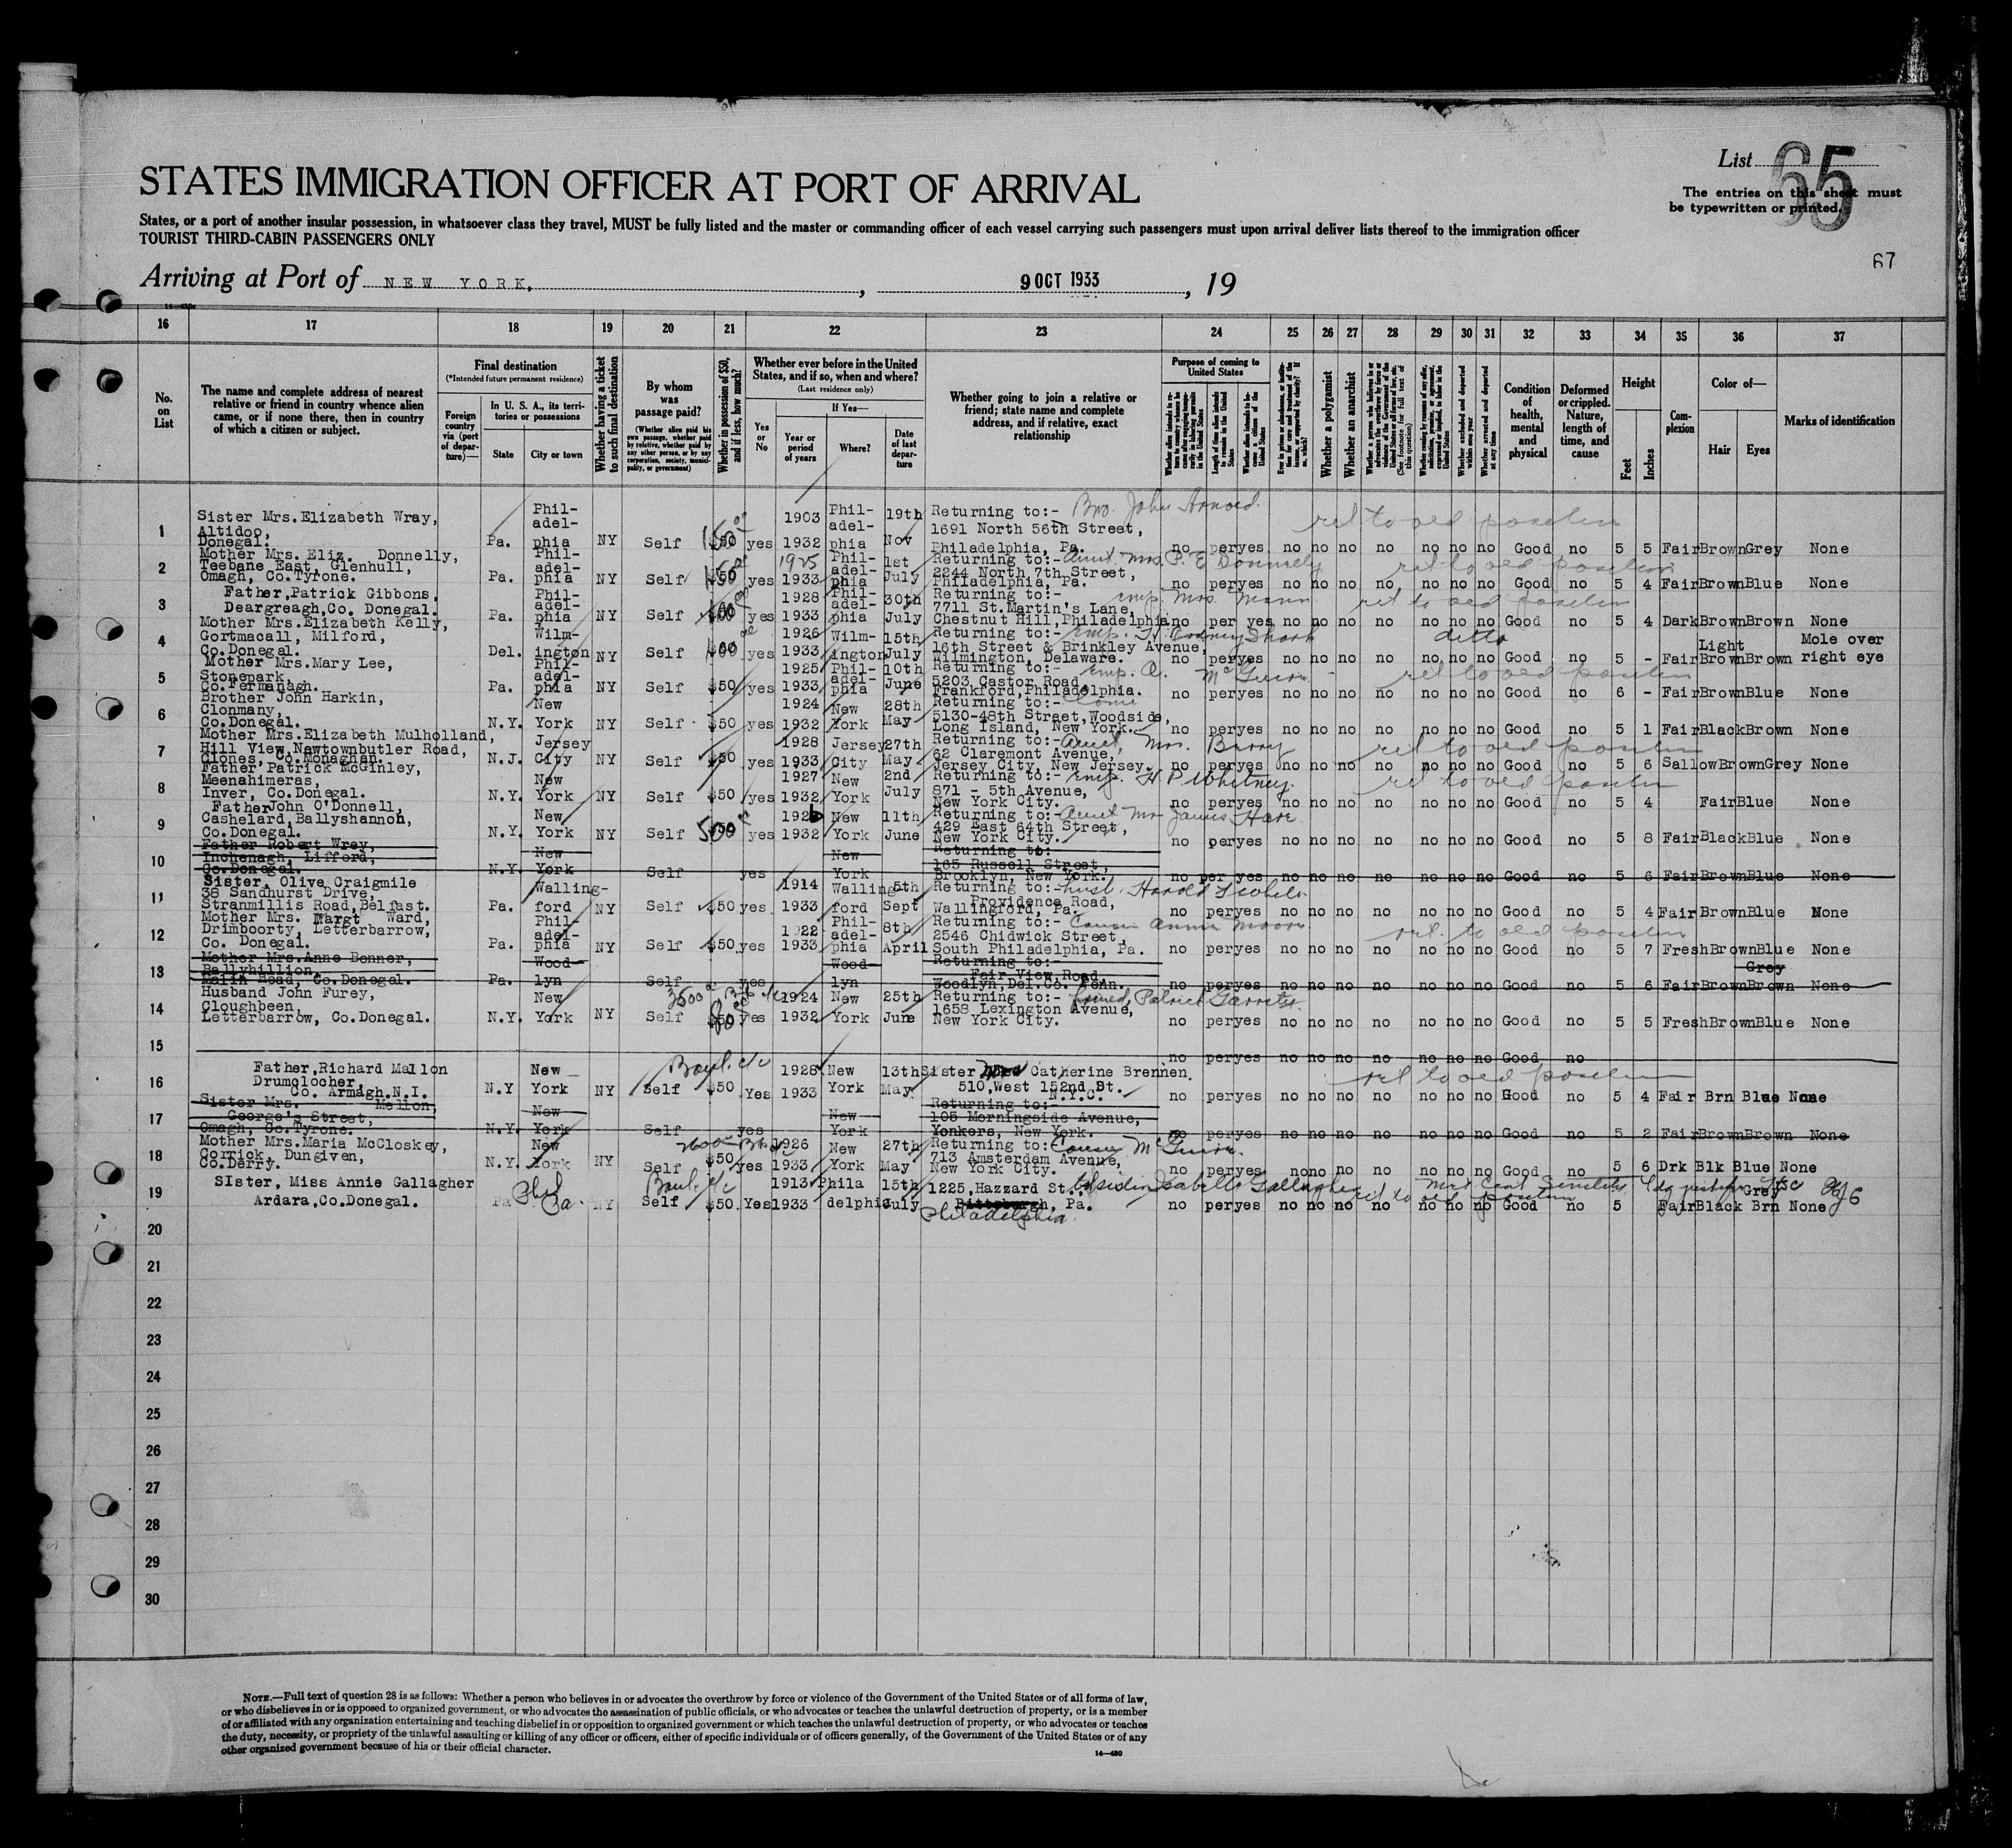 List 65
STATES IMMIGRATION OFFICER AT PORT OF ARRIVAL
The entries on this sheet must
be typewritten or printed.
States, or a port of another insular possession, in whatsoever class they travel, MUST be fully listed and the master or commanding officer of each vessel carrying such passengers must upon arrival deliver lists thereof to the immigration officer
TOURIST THIRD-CABIN PASSENGERS ONLY
67
Arriving at Port of NEW YORK, , 9 OCT 1933 , 19
16 17 18 19 20 21 22 23 24 25 26 27 28 29 30 31 32 33 34 35 36 37
No. on List
The name and complete address of nearest
relative or friend in country whence alien
came, or if none there, then in country
of which a citizen or subject.
Final destination
(*Intended future permanent residence)
Foreign country via (port of departure)—
In U. S. A., its territories or possessions
State City or town
Whether having a ticket to such final destination
By whom was passage paid?
(Whether alien paid his own passage, whether paid by relative, whether paid by any other person, or by any corporation, society, municipality, or government)
Whether in possession of $50, and if less, how much?
Whether ever before in the United States, and if so, when and where?
(Last residence only)
Yes or No
If Yes—
Year or period of years Where? Date of last departure
Whether going to join a relative or
friend; state name and complete
address, and if relative, exact
relationship
Purpose of coming to United States
Whether a polygamist
Whether an anarchist
Condition of health, mental and physical
Deformed or crippled. Nature, length of time, and cause
Height
Feet Inches
Complexion
Color of—
Hair Eyes
Marks of identification
1 Sister Mrs.Elizabeth Wray,
Altidoo,
Donegal.
Pa. Philadelphia NY Self $50 yes 1903 1932 Philadelphia 19th Nov
Returning to:- Bro. John Arnold.
1691 North 56th Street,
Philadelphia, Pa.
no per yes no no no no no no no Good no 5 5 Fair Brown Grey None
2 Mother Mrs.Eliz. Donnelly,
Teebane East, Glenhull,
Omagh, Co.Tyrone.
Pa. Philadelphia NY Self $50 yes 1925 1933 Philadelphia 1st July
Returning to:- Aunt Mrs. P. E Donnelly
2244 North 7th Street,
Philadelphia, Pa.
no per yes no no no no no no no Good no 5 4 Fair Brown Blue None
3 Father,Patrick Gibbons,
Deargreagh,Co. Donegal.
Pa. Philadelphia NY Self yes 1928 1933 Philadelphia 30th July
Returning to:- emp. Mrs. Mann
7711 St.Martin's Lane,
Chestnut Hill,Philadelphia.
no per yes no no no no no no no Good no 5 4 Dark Brown Brown None
4 Mother Mrs.Elizabeth Kelly,
Gortmacall, Milford,
Co.Donegal.
Del. Wilmington NY Self yes 1926 1933 Wilmington 15th July
Returning to:- emp. H. Rodney Sharp
16th Street & Brinkley Avenue,
Wilmington, Delaware.
ditto
no per yes no no no no no no no Good no 5 - Fair Light Brown Brown Mole over right eye
5 Mother Mrs.Mary Lee,
Stonepark,
Co.Fermanagh.
Pa. Philadelphia NY Self $50 yes 1925 1933 Philadelphia 10th June
Returning to:- emp. A.
5203 Castor Road,
Frankford,Philadelphia.
no per yes no no no no no no no Good no 6 - Fair Brown Blue None
6 Brother John Harkin,
Clonmany,
Co.Donegal.
N.Y. New York NY Self $50 yes 1924 1932 New York 28th May
Returning to:- Home
5130-48th Street,Woodside,
Long Island, New York.
no per yes no no no no no no no Good no 5 1 Fair Black Brown None
7 Mother Mrs.Elizabeth Mulholland,
Hill View,Newtownbutler Road,
Clones, Co.Monaghan.
N.J. Jersey City NY Self $50 yes 1928 1933 Jersey City 27th May
Returning to:- Aunt Mrs. Barry
62 Claremont Avenue,
Jersey City, New Jersey.
no per yes no no no no no no no Good no 5 6 Sallow Brown Grey None
8 Father Patrick McGinley,
Meenahimeras,
Inver, Co.Donegal.
N.Y. New York NY Self $50 yes 1927 1932 New York 2nd July
Returning to:- emp. H P Whitney.
871 - 5th Avenue,
New York City.
no per yes no no no no no no no Good no 5 4 Fair Blue None
9 Father John O'Donnell,
Cashelard,Ballyshannon,
Co.Donegal.
N.Y. New York NY Self $50 yes 1926 1932 New York 11th June
Returning to:- Aunt Mrs James Hare
429 East 64th Street,
New York City.
no per yes no no no no no no no Good no 5 8 Fair Black Blue None
10 Father Robert Wrey,
Inchenagh, Lifford,
Co.Donegal.
N.Y. New York Self yes New York
Returning to:-
165 Russell Street,
Brooklyn, New York.
no per yes no no no no no no no Good no 5 6 Fair Brown Blue None
11 Sister, Olive Craigmile
38 Sandhurst Drive,
Stranmillis Road,Belfast.
Pa. Wallingford NY Self $50 yes 1914 1933 Wallingford 5th Sept
Returning to:- husb. Harold
Providence Road,
Wallingford, Pa.
no per yes no no no no no no no Good no 5 4 Fair Brown Blue None
12 Mother Mrs. Margt Ward,
Drimboorty, Letterbarrow,
Co. Donegal.
Pa. Philadelphia NY Self $50 yes 1922 1933 Philadelphia 8th April
Returning to:- Cousin Annie Moore
2546 Chidwick Street,
South Philadelphia, Pa.
no per yes no no no no no no no Good no 5 7 Fresh Brown Blue None
13 Mother Mrs.Anne Bonner,
Ballyhillion,
Malin Head, Co.Donegal.
Pa. Woodlyn Self yes Woodlyn
Returning to:-
Fair View Road,
Woodlyn,Del.Co. Penn.
no per yes no no no no no no no Good no 5 6 Fair Brown Grey Brown None
14 Husband John Furey,
Cloughbeen,
Letterbarrow, Co.Donegal.
N.Y. New York NY Self $50 yes 1924 1932 New York 25th June
Returning to:- friend, Patrick
1658 Lexington Avenue,
New York City.
no per yes no no no no no no no Good no 5 5 Fresh Brown Blue None
15 no per yes no no no no no no no Good no
16 Father,Richard Mallon
Drumolocher,
Co. Armagh.N.I.
N.Y New York NY Self $50 Yes 1928 1933 New York 13th May
Sister Catherine Brennen
510,West 152nd St.
N.Y.C.
no per yes no no no no no no no Good no 5 4 Fair Brn Blue None
17 Sister Mrs. Mellon,
George's Street,
Omagh, Co.Tyrone.
N.Y. New York Self yes New York
Returning to:-
105 Morningside Avenue,
Yonkers, New York.
no per yes no no no no no no no Good no 5 2 Fair Brown Brown None
18 Mother Mrs.Maria McCloskey,
Corrick, Dungiven,
Co.Derry.
N.Y. New York NY Self $50 yes 1926 1933 New York 27th May
Returning to:- Cousin
713 Amsterdam Avenue,
New York City.
no per yes no no no no no no no Good no 5 6 Drk Blk Blue None
19 SIster, Miss Annie Gallagher
Ardara,Co.Donegal.
Pa Phil Pa. NY Self $50 Yes 1913 1933 Philadelphia 15th July
1225,Hazzard St., Isabelle Gallagher
Pittsburgh, Pa.
Philadelphia
no per yes no no no no no no no Good no 5 Fair Black Grey Brn None
20
21
22
23
24
25
26
27
28
29
30
NOTE.—Full text of question 28 is as follows: Whether a person who believes in or advocates the overthrow by force or violence of the Government of the United States or of all forms of law,
or who disbelieves in or is opposed to organized government, or who advocates the assassination of public officials, or who advocates or teaches the unlawful destruction of property, or is a member
of or affiliated with any organization entertaining and teaching disbelief in or opposition to organized government or which teaches the unlawful destruction of property, or who advocates or teaches
the duty, necessity, or propriety of the unlawful assaulting or killing of any officer or officers, either of specific individuals or of officers generally, of the Government of the United States or of any
other organized government because of his or their official character.
14—430